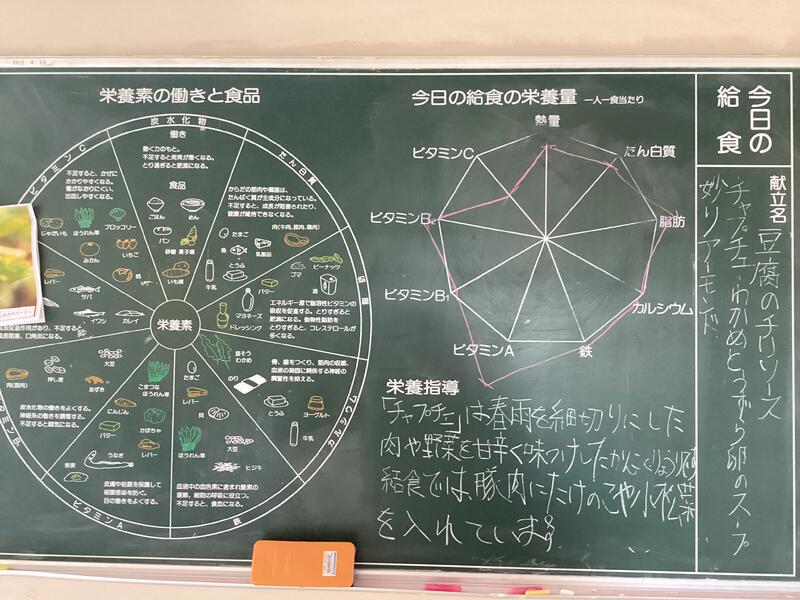 栄養素の働きと食品
炭水化物
働き
働く力のもと。
不足すると発育が悪くなる。
とり過ぎると肥満になる。
食品
ごはん
めん
パン
砂糖
菓子類
いも類
たん白質
からだの筋肉や臓器は、
たんぱく質が主成分になっている。
不足すると、成長が阻害されたり、
健康が維持できなくなる。
たまご
肉(牛肉、豚肉、鶏肉)
魚
とうふ
乳製品
牛乳
脂肪
ゴマ
ピーナッツ
バター
油
マヨネーズ
ドレッシング
エネルギー源で脂溶性ビタミンの
吸収を促進する。とりすぎると
肥満になる。動物性脂肪を
とりすぎると、コレステロールが
多くなる。
カルシウム
骨、歯をつくり、筋肉の収縮、
血液の凝固に関係する神経の
興奮性を抑える。
わかめ
のり
とうふ
ヨーグルト
牛乳
鉄
たまご
レバー
貝
ほうれん草
大豆
ヒジキ
血液中の血色素に含まれ酸素の
運搬、細胞の呼吸に役立つ。
不足すると、貧血になる。
ビタミンA
こまつな
ほうれん草
にんじん
かぼちゃ
バター
レバー
うなぎ
皮膚や粘膜を保護して
細菌感染を防ぐ。
目の働きをよくする。
大豆
押し麦
肉(豚肉)
あずき
炭水化物の働きをよくする。
神経系の働きを調整する。
不足すると脚気になる。
レバー
サバ
イワシ
カレイ
ビタミンC
不足すると、かぜに
かかりやすくなる。
傷がなおりにくい、
出血しやすくなる。
じゃがいも
ほうれん草
ブロッコリー
みかん
いちご
柿
栄養素
今日の給食の栄養量 一人一食当たり
熱量
たん白質
脂肪
カルシウム
鉄
ビタミンA
ビタミンB₁
ビタミンB₂
ビタミンC
栄養指導
「チャプチェ」は春雨を細切りにした
肉や野菜を甘辛く味つけしたかんこくりょうり。
給食では、豚肉にたけのこや小松菜
を入れています。
今日の
給食
献立名
豆腐のチリソース
チャプチェ、わかめとうずら卵のスープ
妙りアーモンド